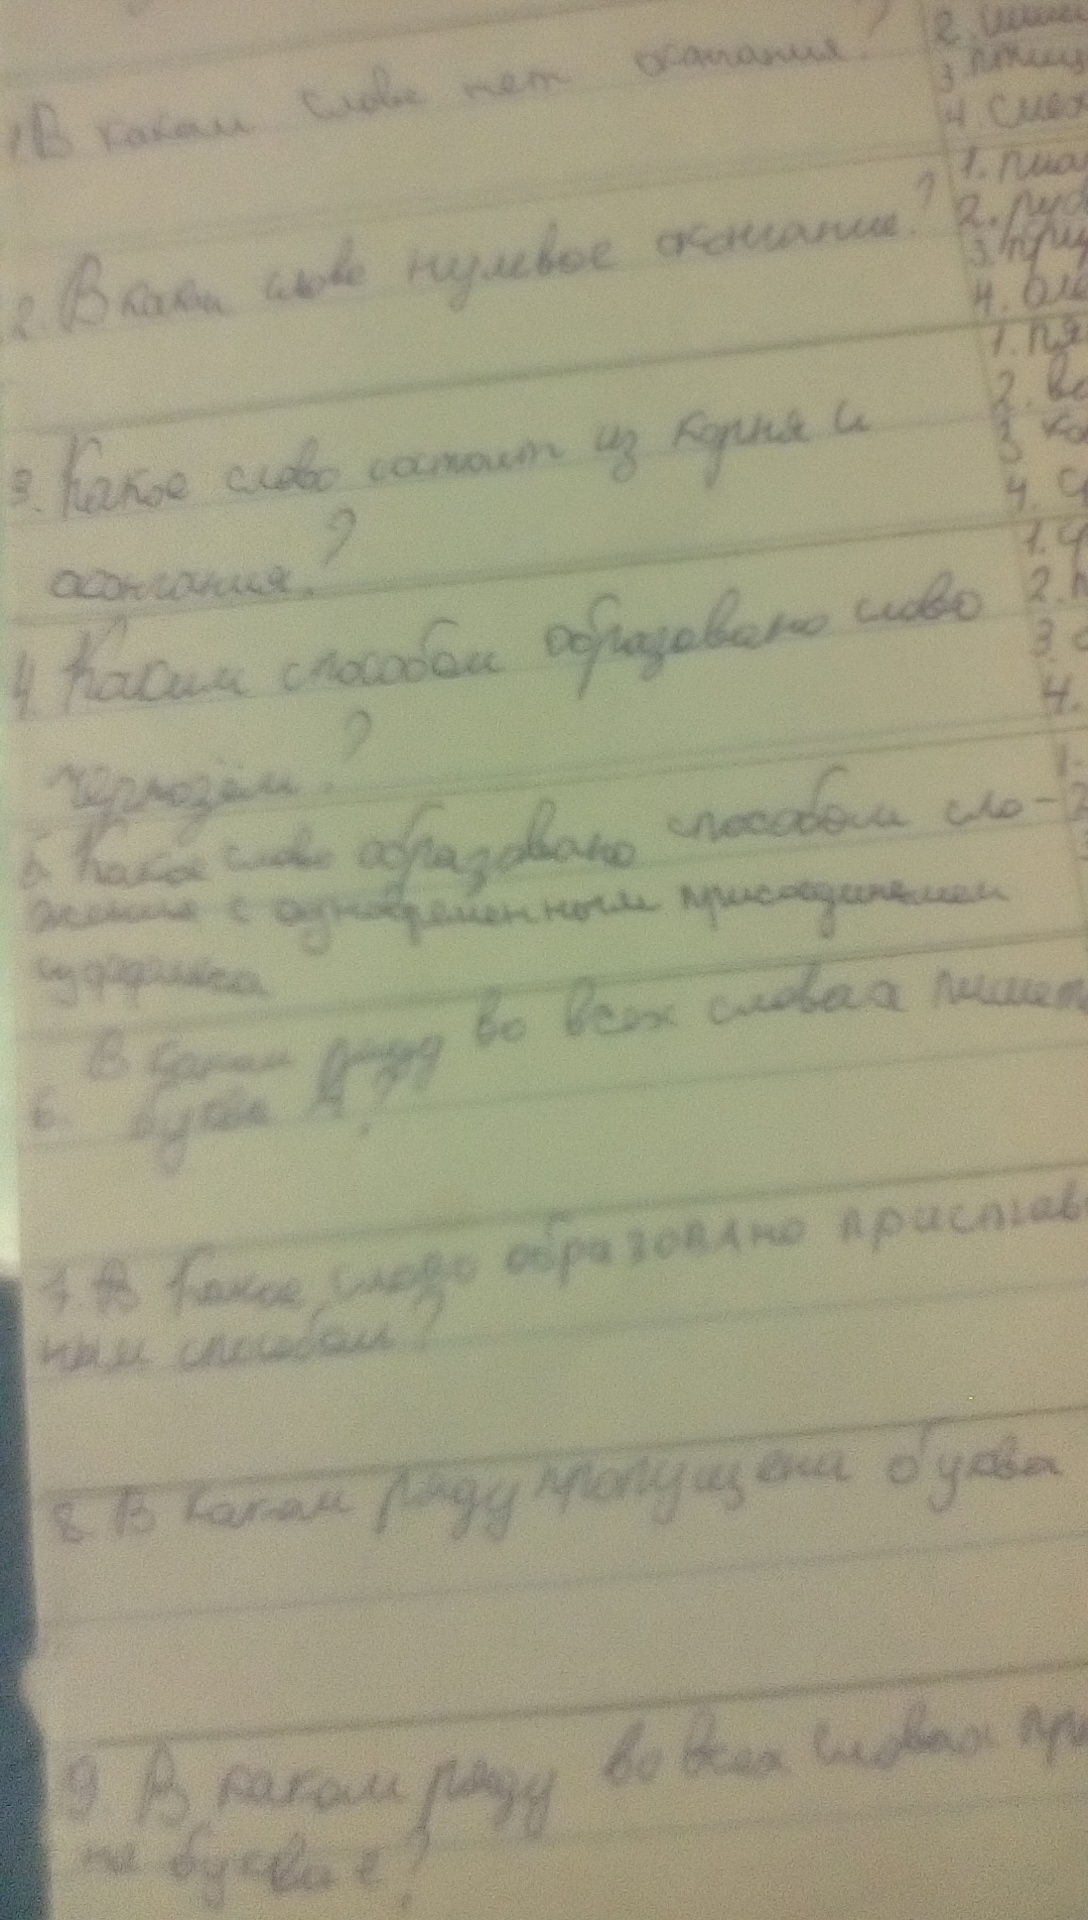 1 В каком слове нет окончания?
2.
3.
4.
2. В каком слове нулевое окончание?
1.
2.
3.
4.
3. Какое слово состоит из корня и
окончания?
1. пя
2. во
3 ко
4. с
4. Каким способом образовано слово
чернозём?
1.
2. п
3.
4.
5. Какое слово образовано способом сло-
жения с одновременным присоединением
суффикса
1.
2
6. В каком ряду во всех словах пишет
буква
7. В Какое слово образовано пристав
ным способом?
8. В каком ряду пропущена буква
9. В каком ряду во всех словах про
на буква е?